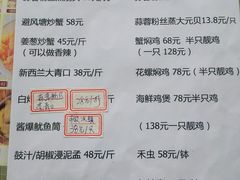 避风塘炒蟹 58元/斤
蒜蓉粉丝蒸大元贝13.8元/只
姜葱炒蟹 45元/斤
（可以做香辣）
蟹焖鸡 68元/半只靓鸡
（一只 128元）
新西兰大青口 38元/斤
花螺焖鸡 78元/半只靓鸡
白灼
海鲜鸡煲 78元/半只
酱爆鱿鱼筒
（138元一只靓鸡）
豉汁/胡椒浸泥孟 48元/斤
禾虫 58元/钵